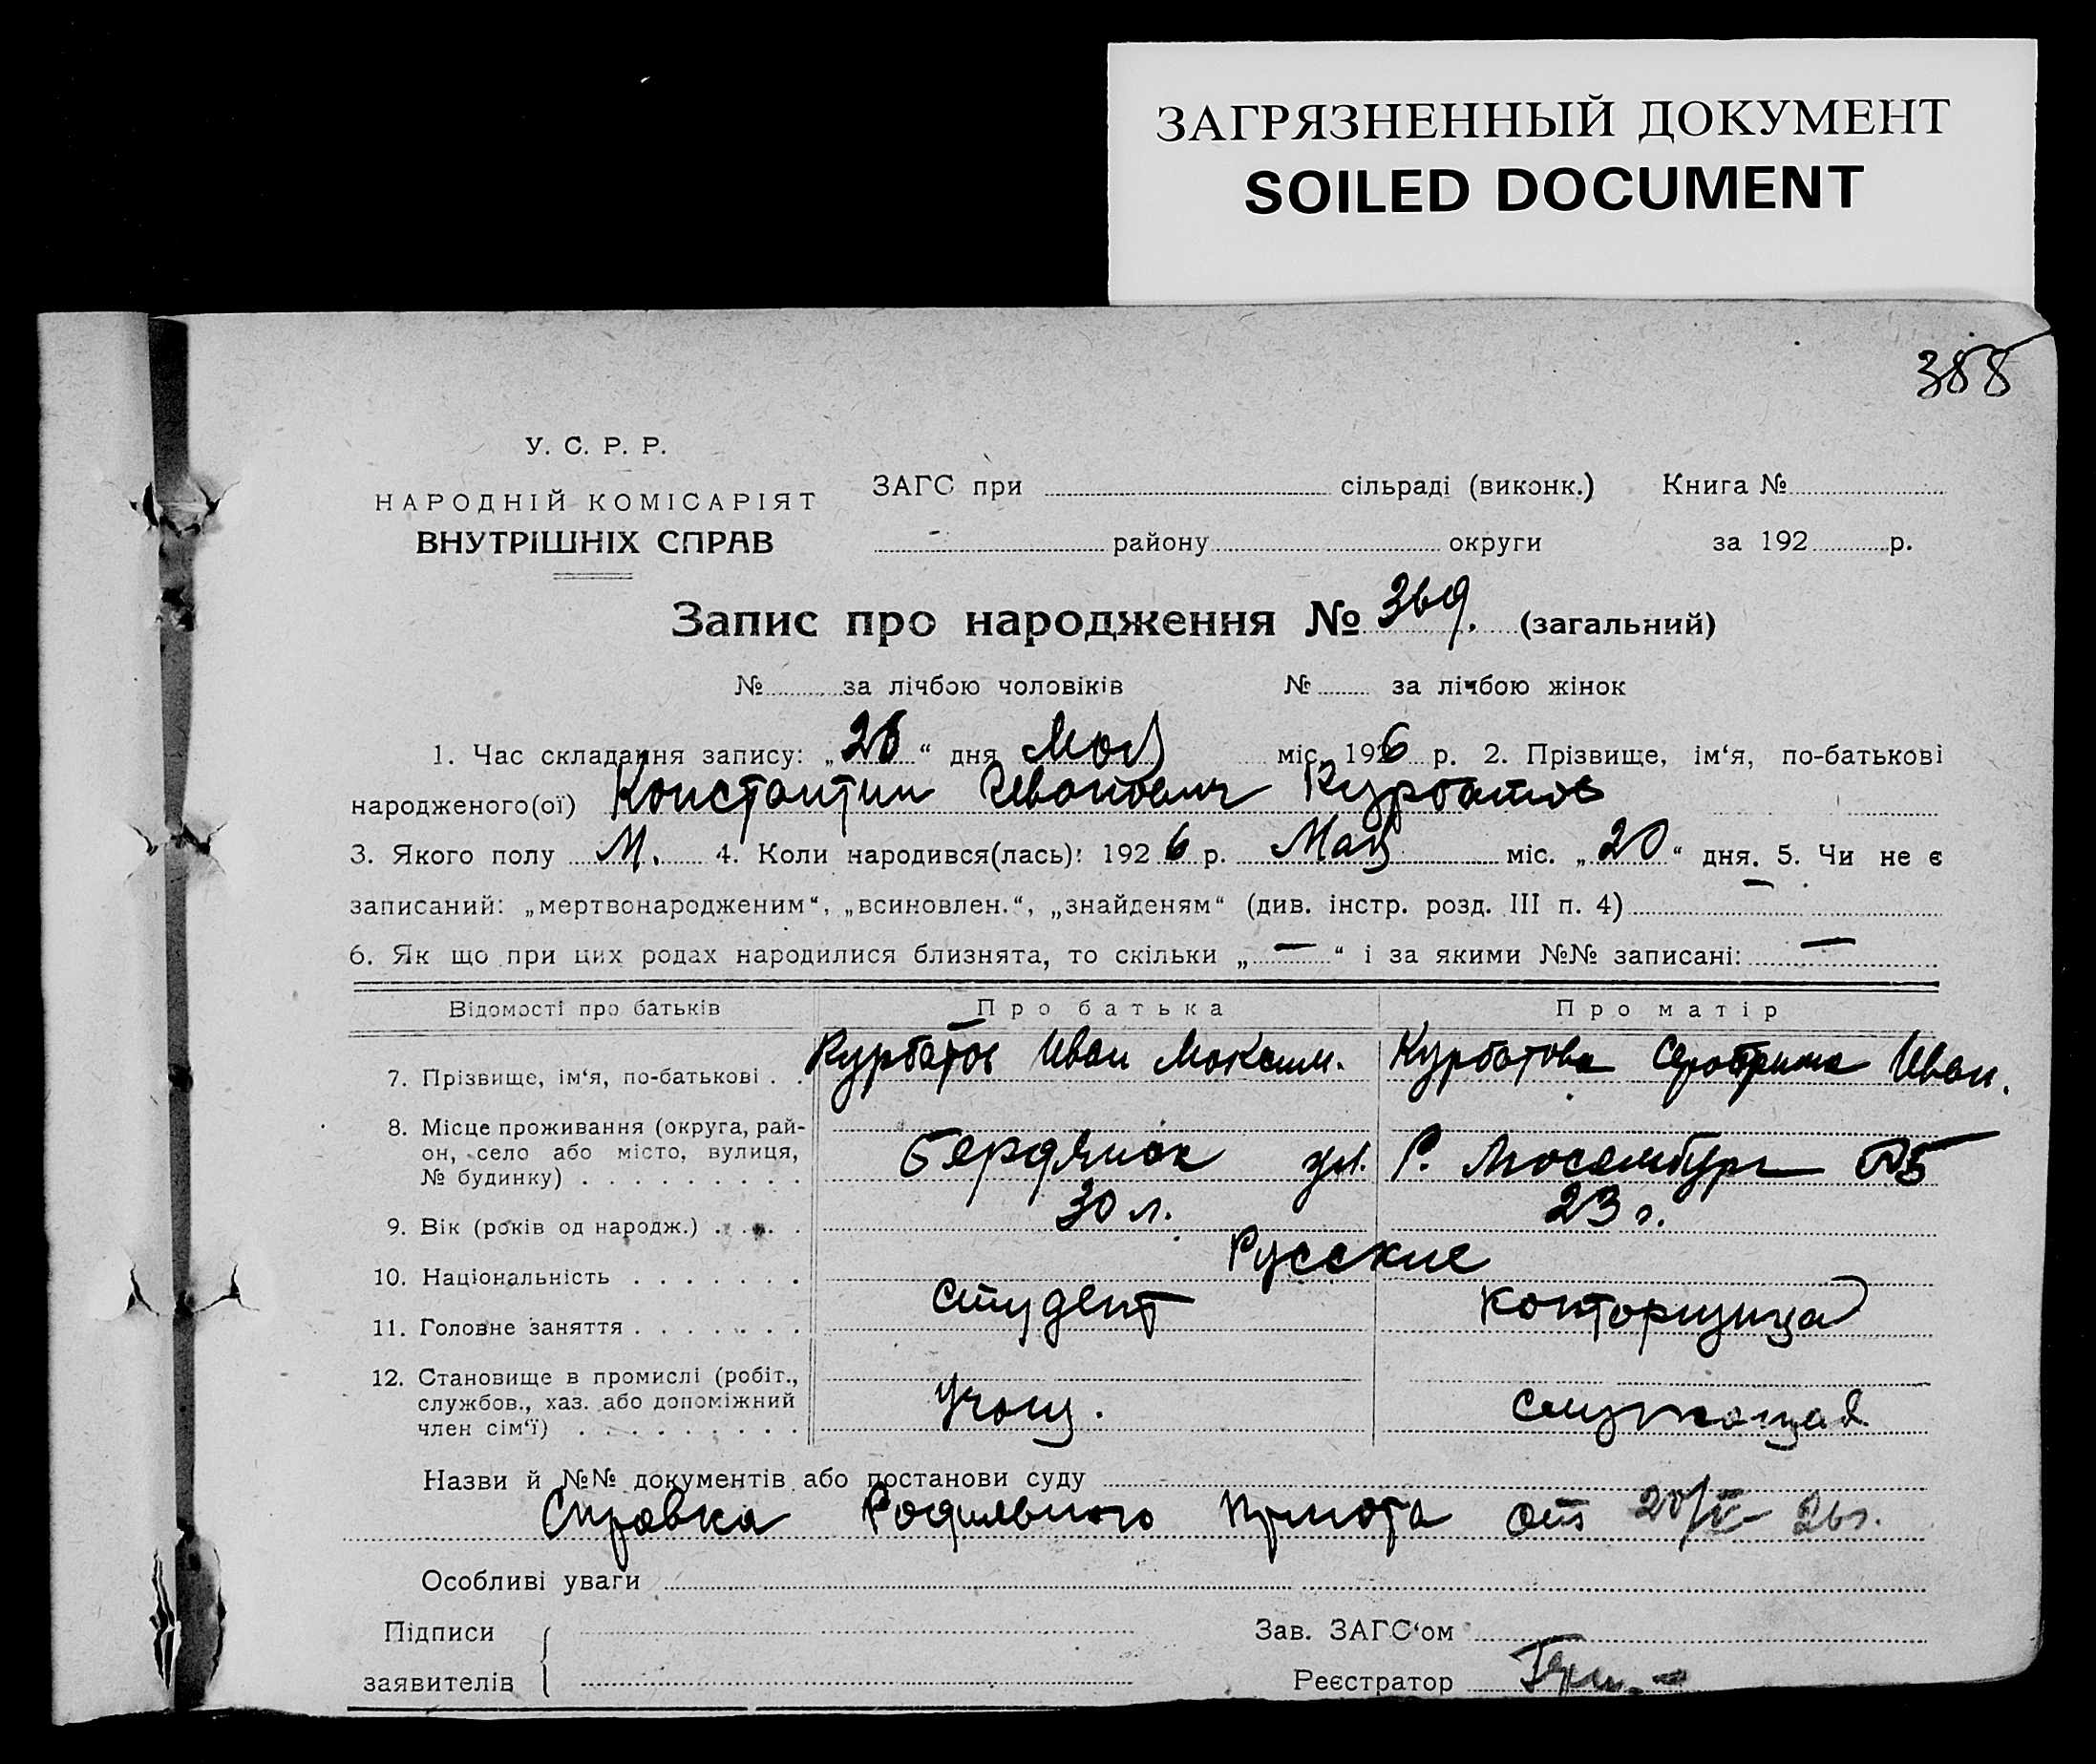 ЗАГРЯЗНЕННЫЙ ДОКУМЕНТ
SOILED DOCUMENT
388
У. С. Р. Р.
НАРОДНІЙ КОМІСАРІЯТ
ВНУТРІШНІХ СПРАВ
ЗАГС при сільраді (виконк.) Книга №
району округи за 192 р.
Запис про народження № 369. (загальний)
№ за лічбою чоловіків № за лічбою жінок
1. Час складання запису: „26“ дня Мая міс. 1926 р. 2. Прізвище, ім‘я, по-батькові
народженого(ої) Константин Иванович Курбатов
3. Якого полу М. 4. Коли народився(лась): 1926 р. Мая міс. „20“ дня. 5. Чи не є
записаний: „мертвонародженим“, „всиновлен.“, „знайденям“ (див. інстр. розд. III п. 4) —
6. Як що при цих родах народилися близнята, то скільки „—“ і за якими №№ записані: —
Відомості про батьків Про батька Про матір
7. Прізвище, ім‘я, по-батькові . . Курбатов Иван Максим. Курбатова Иван.
8. Місце проживання (округа, рай-
он, село або місто, вулиця,
№ будинку) . . . . . . . . . Бердянск ул. Р. Люсембург №5
9. Вік (років од народж.) . . . . 30 л. 23 г.
10. Національність . . . . . . . Русские
11. Головне заняття . . . . . . . студент конторщица
12. Становище в промислі (робіт.,
службов., хаз. або допоміжний
член сім‘ї) . . . . . . . . . учащ. служащая
Назви й №№ документів або постанови суду
Справка Родильного Приюта от 20/V- 26г.
Особливі уваги
Підписи
заявителів
Зав. ЗАГС‘ом
Реєстратор